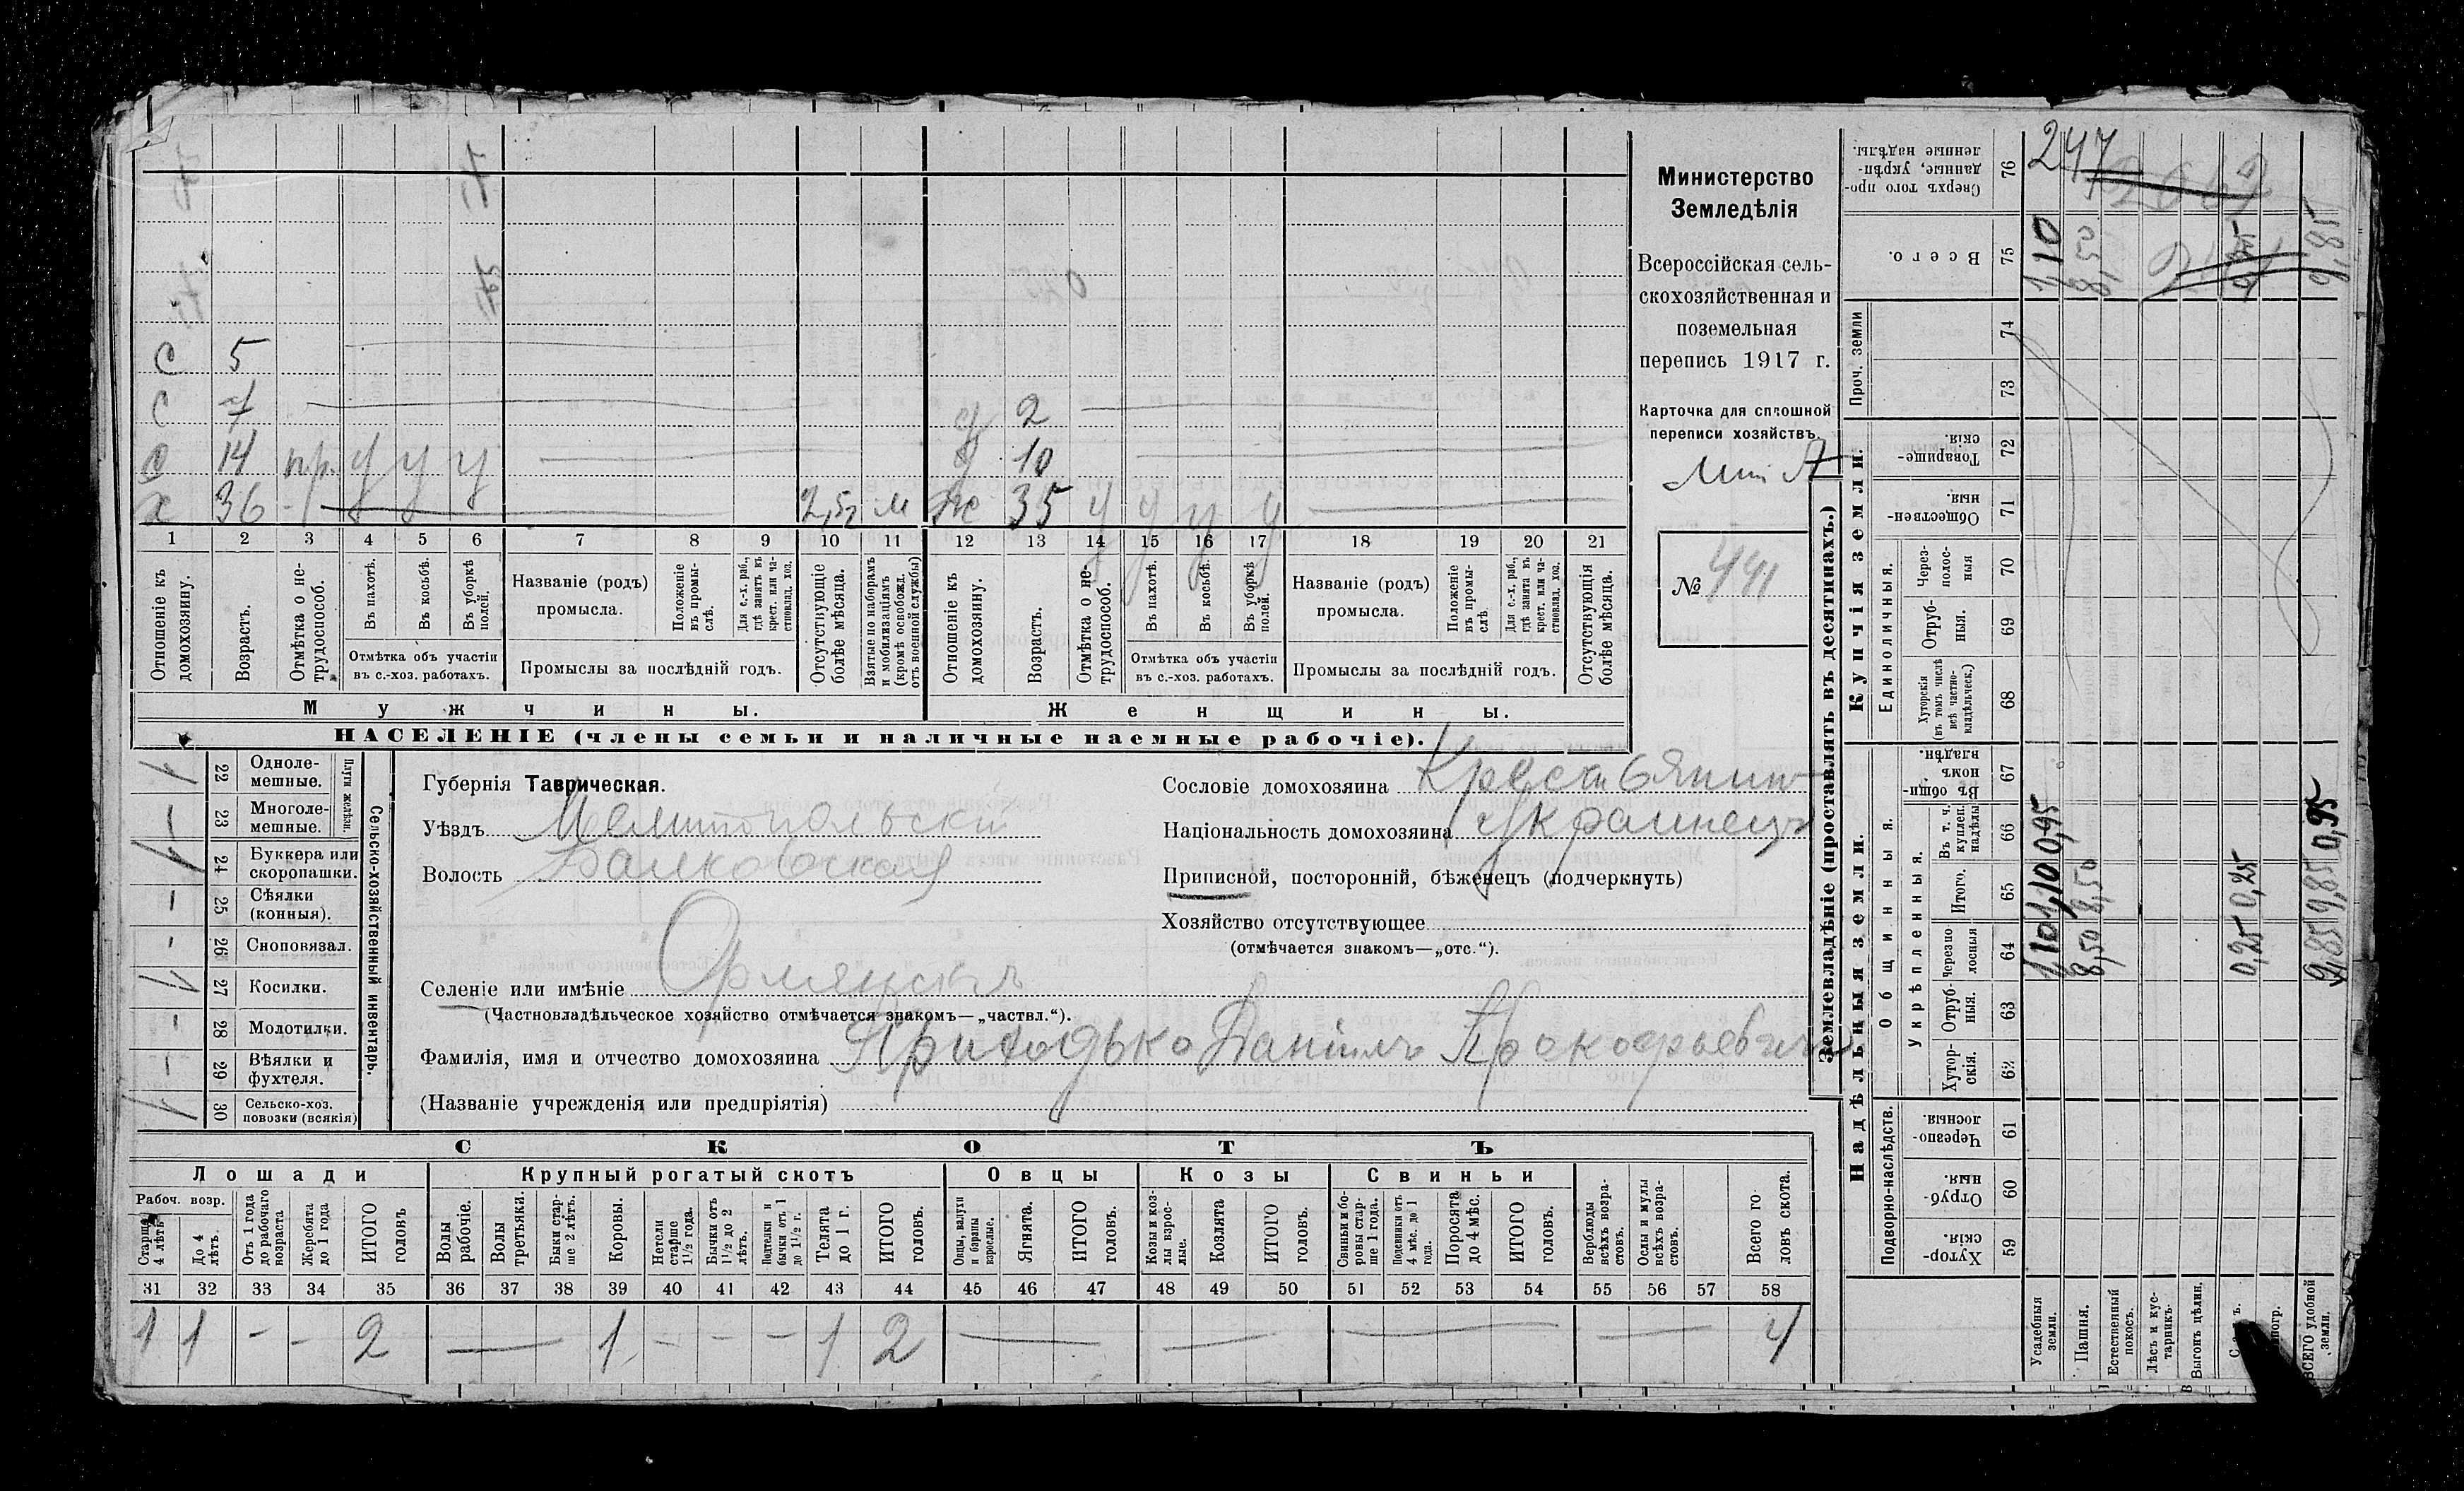 С 5
С 7 2
14 пр. у у у 10
х 36 2,5 м ж 35 у у у у
1 2 3 4 5 6 7 8 9 10 11 12 13 14 15 16 17 18 19 20 21
Отношеніе къ домохозяину.
Возрастъ.
Отмѣтка о нетрудоспособ.
Въ пахотѣ.
Въ косьбѣ.
Въ уборкѣ полей.
Отмѣтка объ участіи въ с.-хоз. работахъ.
Названіе (родъ) промысла.
Положеніе въ промыслѣ.
Для с.-х. раб., гдѣ занятъ въ крест. или частновлад. хоз.
Промыслы за послѣдній годъ.
Отсутствующіе болѣе мѣсяца.
Взятые по наборамъ и мобилизаціямъ (кромѣ освобожд. отъ военной службы)
Отношеніе къ домохозяину.
Возрастъ.
Отмѣтка о нетрудоспособ.
Въ пахотѣ.
Въ косьбѣ.
Въ уборкѣ полей.
Отмѣтка объ участіи въ с.-хоз. работахъ.
Названіе (родъ) промысла.
Положеніе въ промыслѣ
Для с.-х. раб., гдѣ занята въ крест. или частновлад. хоз.
Промыслы за послѣдній годъ.
Отсутствующія болѣе мѣсяца.
Мужчины.
Женщины.
НАСЕЛЕНІЕ (члены семьи и наличные наемные рабочіе).
Министерство
Земледѣлія
Всероссійская сель-
скохозяйственная и
поземельная
перепись 1917 г.
Карточка для сплошной
переписи хозяйствъ.
№ 441
Сельско-хозяйственный инвентарь.
Плуги желѣзн.
1 22 Одноле-
мешные.
— 23 Многоле-
мешные.
1 24 Буккера или
скоропашки.
— 25 Сѣялки
(конныя).
- 26 Сноповязал.
1 27 Косилки.
- 28 Молотилки.
- 29 Вѣялки и
фухтеля.
1 30 Сельско-хоз.
повозки (всякія)
Губернія Таврическая.
Уѣздъ Мелитопольскій
Волость Балковская
Селеніе или имѣніе Орлянскъ
(Частновладѣльческое хозяйство отмѣчается знакомъ—„частвл.“).
Фамилія, имя и отчество домохозяина Приходько Даніилъ Прокофьевичъ
(Названіе учрежденія или предпріятія)
Сословіе домохозяина Крестьянин
Національность домохозяина Украинецъ
Приписной, посторонній, бѣженецъ (подчеркнуть)
Хозяйство отсутствующее
(отмѣчается знакомъ—„отс.“).
СКОТЪ
Лошади Крупный рогатый скотъ Овцы Козы Свиньи
Рабоч. возр.
Старше 4 лѣтъ
До 4 лѣтъ.
Отъ 1 года до рабочаго возраста
Жеребята до 1 года
ИТОГО головъ
Волы рабочіе.
Волы третьяки.
Быки старше 2 лѣтъ.
Коровы.
Нетели старше 1½ года.
Бычки отъ 1½ до 2 лѣтъ.
Подтелки и бычки отъ 1 до 1½ г.
Телята до 1 г.
ИТОГО головъ.
Овцы, валухи и бараны взрослые.
Ягнята.
ИТОГО головъ.
Козы и козлы взрослые.
Козлята
ИТОГО головъ.
Свиньи и боровы старше 1 года.
Подсвинки отъ 4 мѣс. до 1 года.
Поросята до 4 мѣс.
ИТОГО головъ.
Верблюды всѣхъ возрастовъ.
Ослы и мулы всѣхъ возрастовъ.
Всего головъ скота.
31 32 33 34 35 36 37 38 39 40 41 42 43 44 45 46 47 48 49 50 51 52 53 54 55 56 57 58
1 1 - - 2 — 1 - - - 1 2 — — — — 4
Землевладѣніе (проставлять въ десятинахъ.)
Купчія земли.
Надѣльныя земли.
Сверхъ того проданные, укрѣпленные надѣлы. 76 247
Всего. 75 1,10 8,50 9,85
Проч. земли 74
73
Товарищескія. 72
Общественныя. 71
Единоличныя.
Черезполосныя 70
Отрубныя. 69
Хуторскія (въ томъ числѣ всѣ частновладѣльческ.) 68
Общинныя.
Въ общинномъ владѣн. 67
Укрѣпленныя.
Въ т. ч. куплен. надѣлы 66 0,95 0,95
Итого. 65 1,10 8,50 0,25 9,85
Черезполосныя 64 1,10 8,50 0,25 9,85
Отрубныя. 63
Хуторскія. 62
Подворно-наслѣдств.
Черезполосныя. 61
Отрубныя. 60
Хуторскія. 59
Усадебныя земли.
Пашня.
Естественный покосъ.
Лѣсъ и кустарникъ.
Выгонъ цѣлин.
ВСЕГО удобной земли.